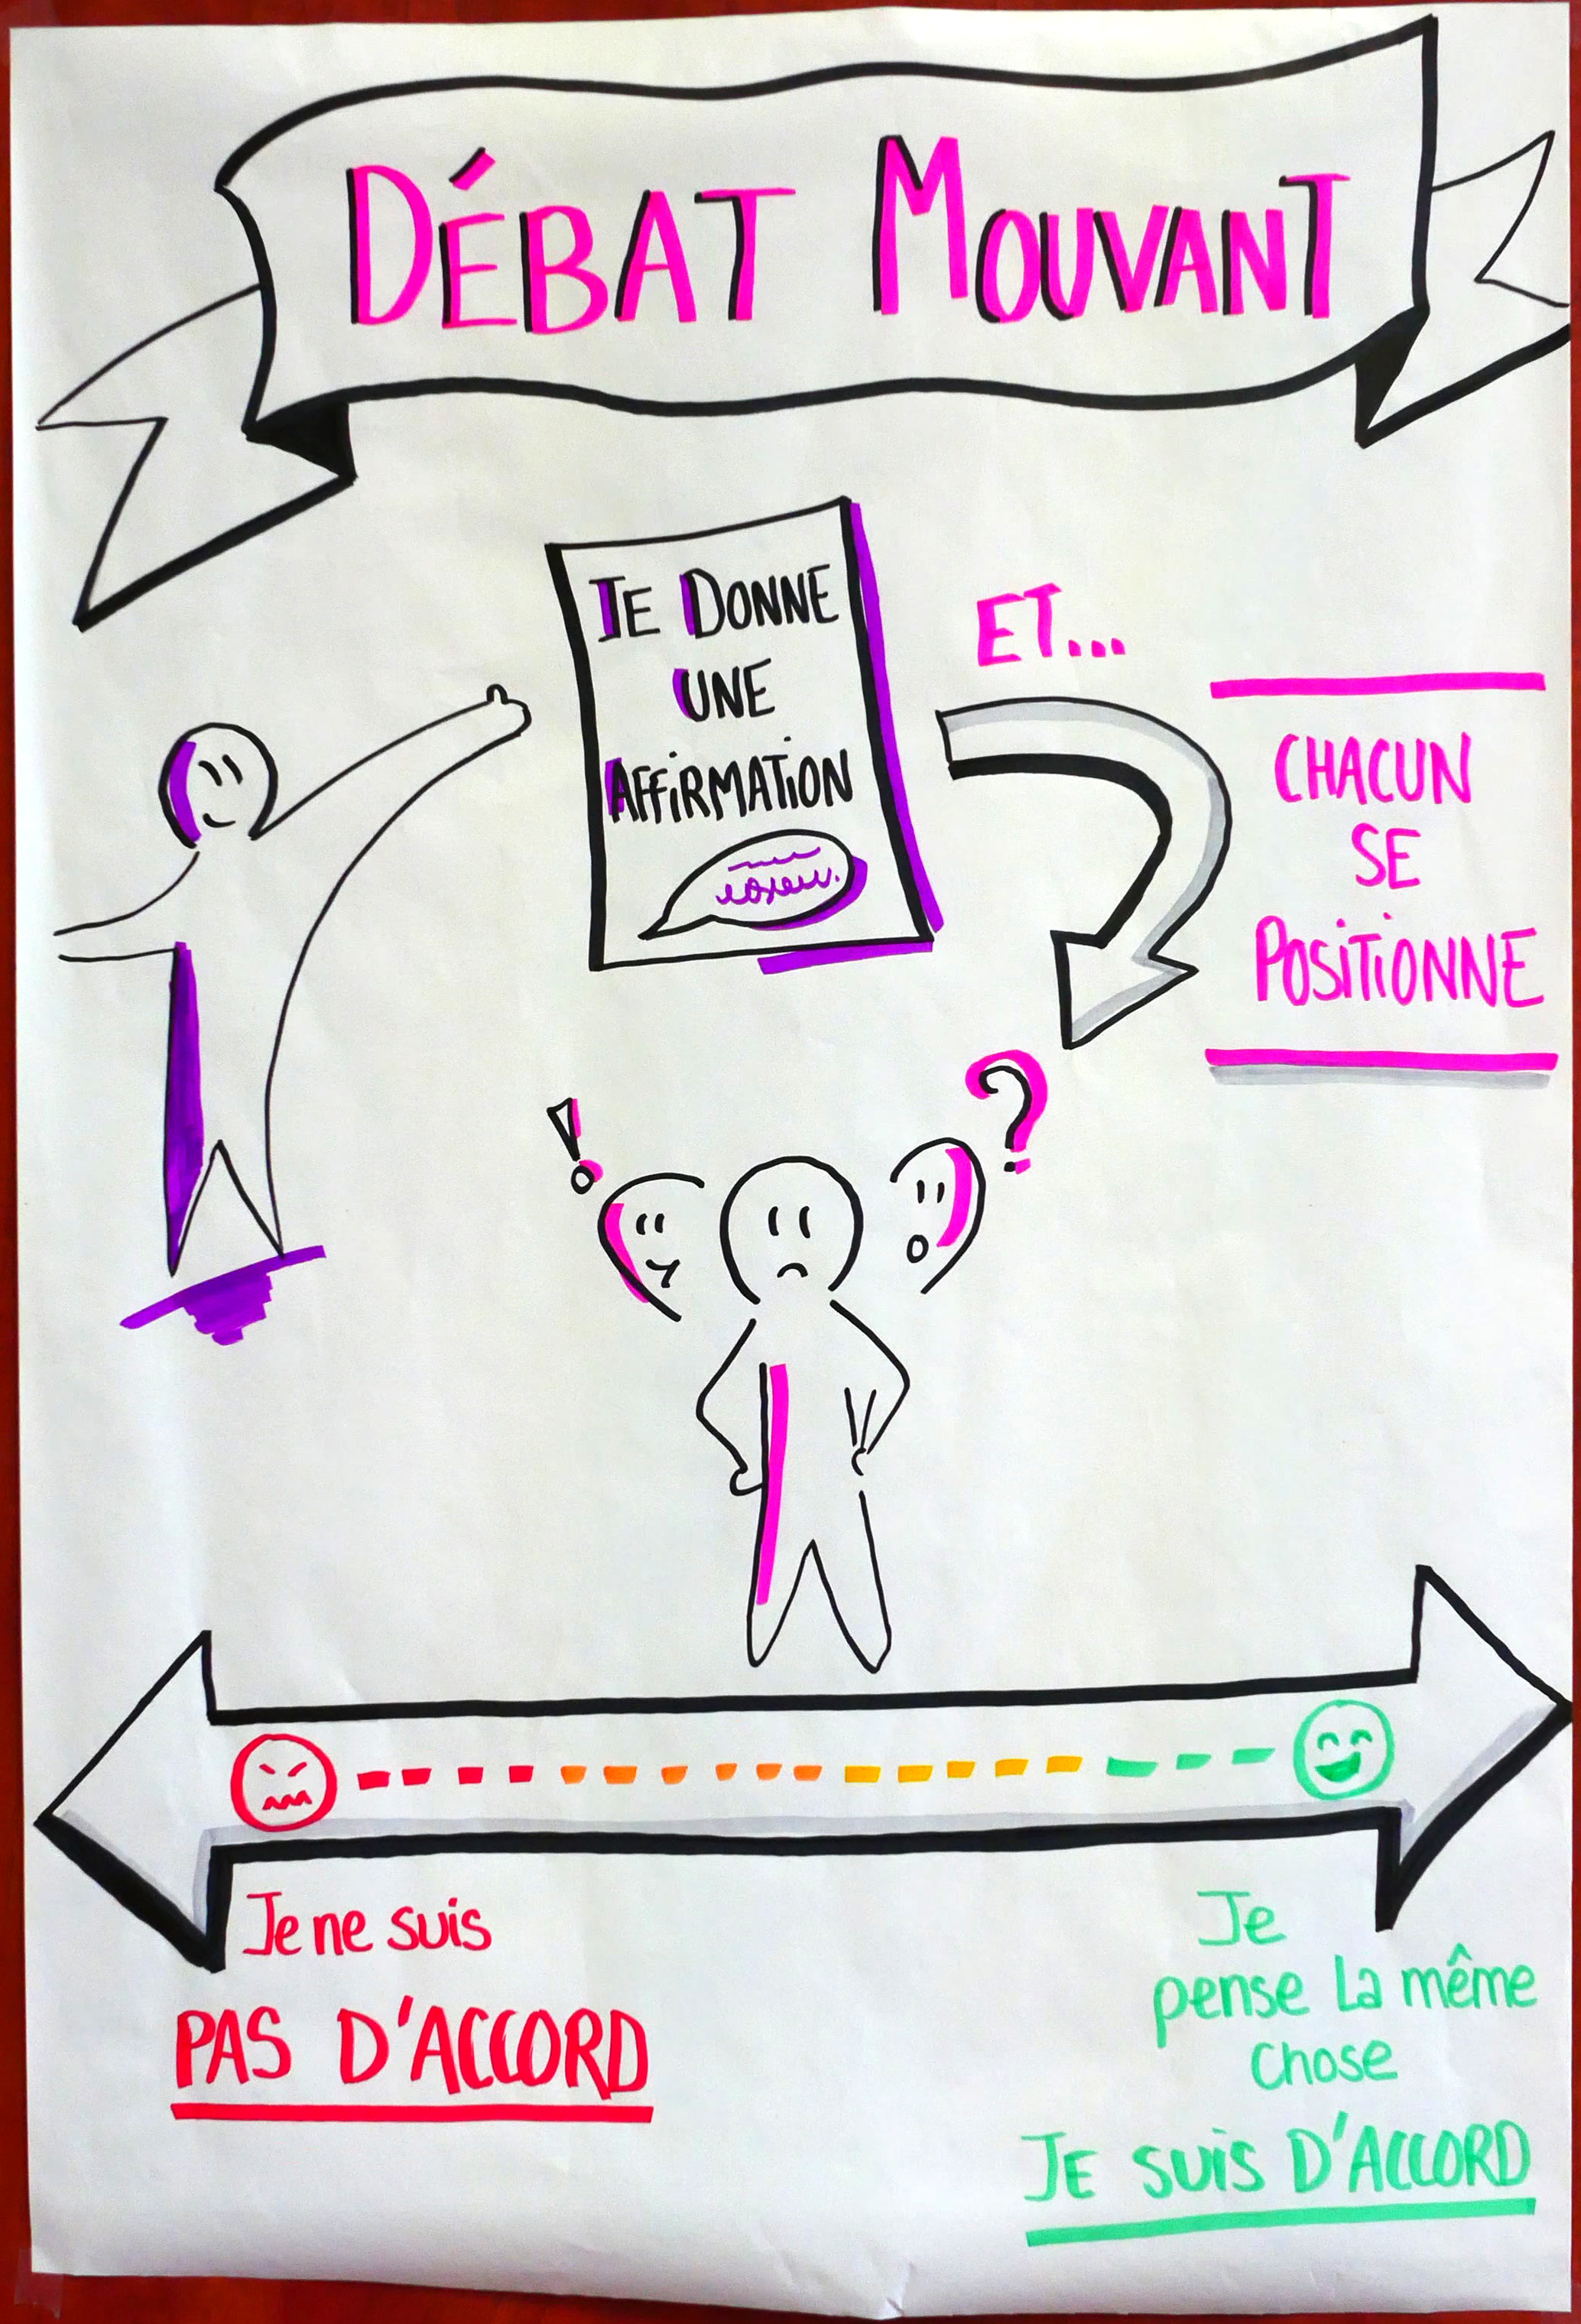 DÉBAT MOUVANT
JE DONNE
UNE
AFFIRMATION
ET...
CHACUN
SE
POSITIONNE
!
?
Je ne suis
PAS D'ACCORD
Je
pense la même
chose
JE SUIS D'ACCORD